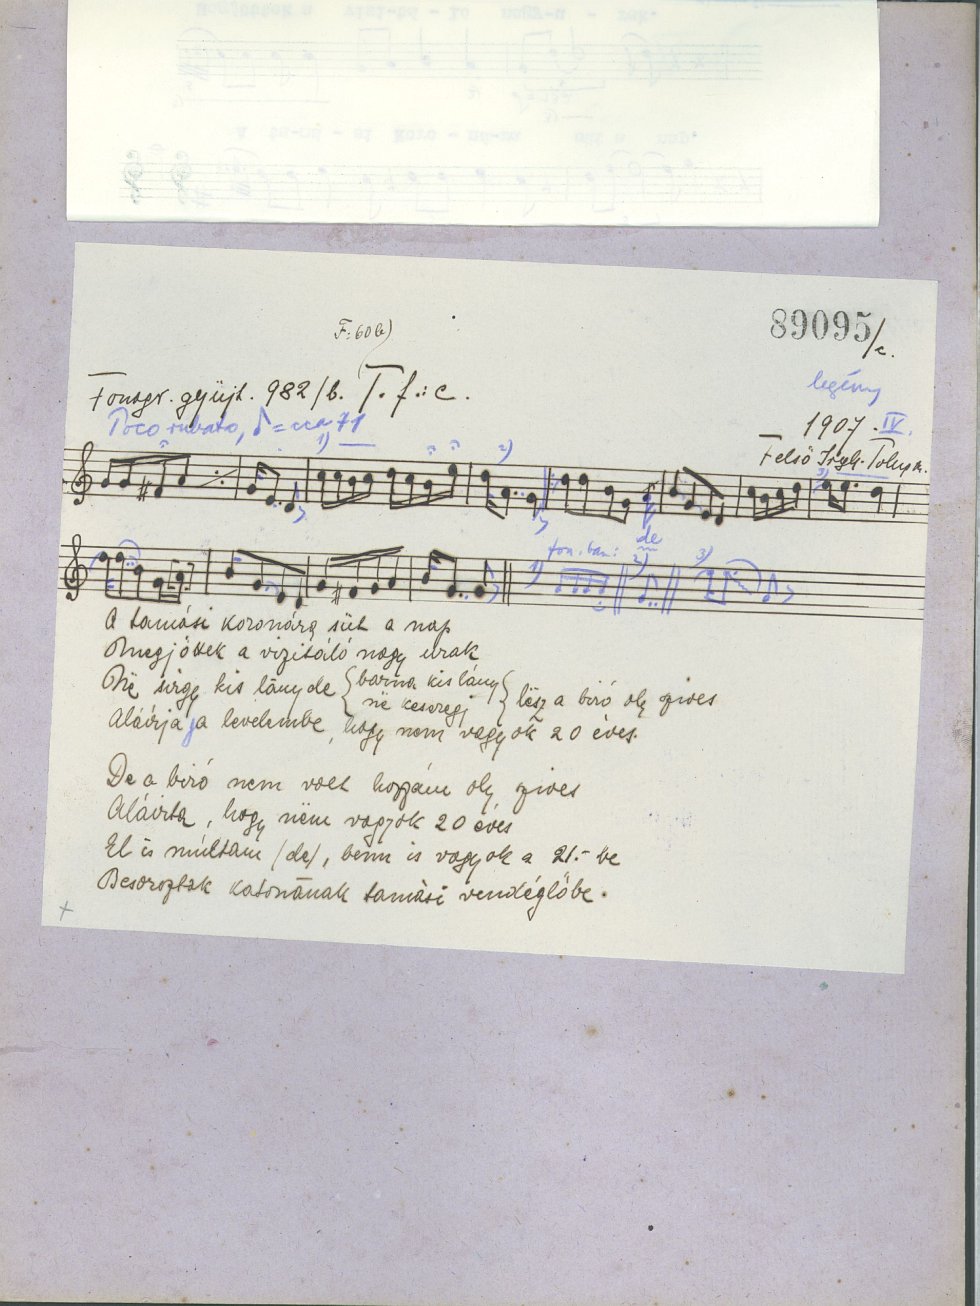 F: 60b)
89095/c.
legény
Fonogr. gyüjt. 982/b. T. f.: c.
Poco rubato, ♪ = cca 71
1907. IV.
Felső Iregh. Tolna m.
1)
2)
3)
fon. ban:
de
1)
2)
3)
A tamási koronára süt a nap
Megjöttek a vizitáló nagy urak
Në sirgy kis lány de { barna kis lány
në keseregj } lësz a biró oly szives
Aláirja ja levelembe, hogy nem vagyok 20 éves.
De a biró nem volt hozzám oly szives
Aláirta, hogy nëm vagyok 20 éves
El is múltam (de), benn is vagyok a 21.-be
Besoroztak katonának tamási vendéglőbe.